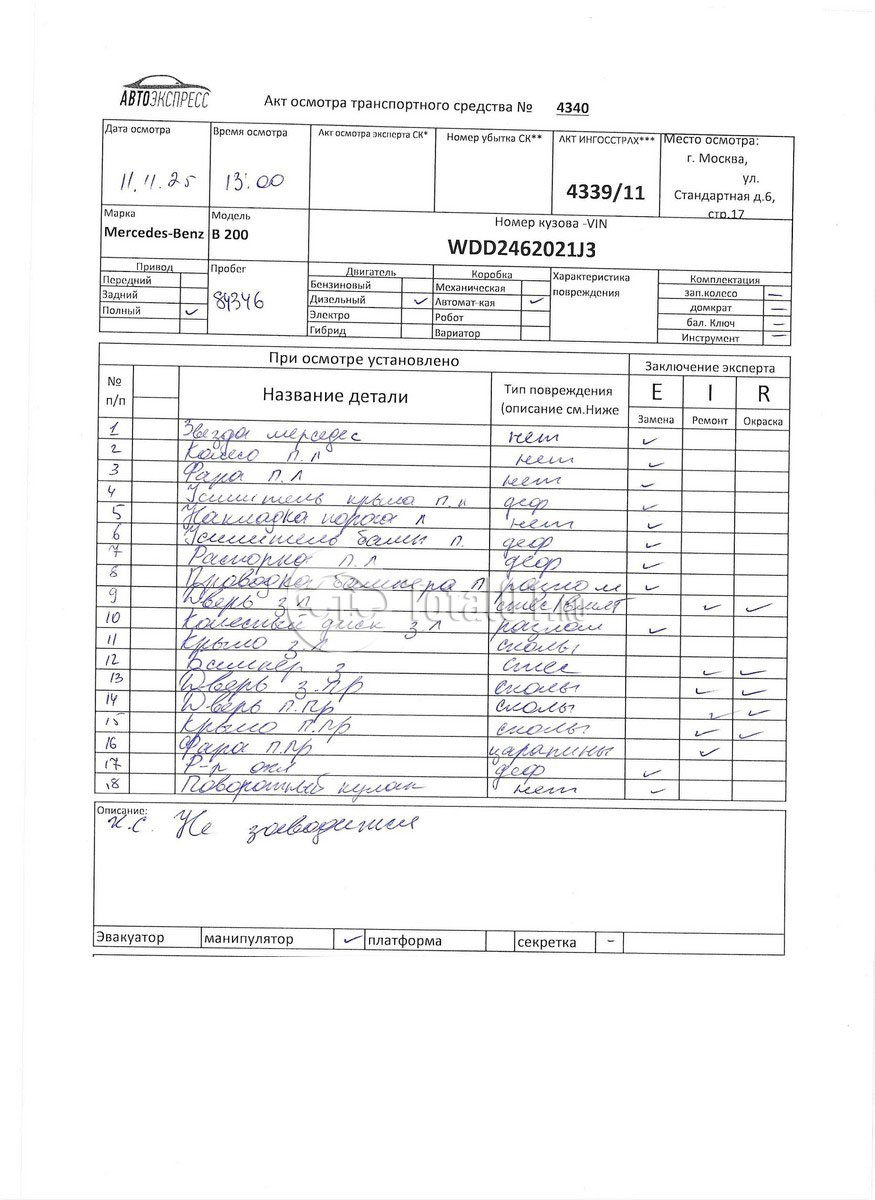 АВТОЭКСПРЕСС
Акт осмотра транспортного средства № 4340
Дата осмотра Время осмотра Акт осмотра эксперта СК* Номер убытка СК** АКТ ИНГОССТРАХ*** Место осмотра:
г. Москва,
ул.
11.11.25 13:00 4339/11 Стандартная д.6,
стр.17
Марка Модель Номер кузова -VIN
Mercedes-Benz B 200 WDD2462021J3
Привод Пробег Двигатель Коробка Характеристика Комплектация
Передний Бензиновый Механическая повреждения зап.колесо —
Задний 84346 Дизельный ✓ Автомат-кая ✓ домкрат —
Полный ✓ Электро Робот бал. Ключ —
Гибрид Вариатор Инструмент —
При осмотре установлено Заключение эксперта
№ п/п Название детали Тип повреждения E I R
(описание см.Ниже Замена Ремонт Окраска
1 Звезда мерседес нет ✓
2 Колесо п.л нет ✓
3 Фара п.л нет ✓
4 Усилитель крыла п.л деф ✓
5 Накладка порога л нет ✓
6 Усилитель балки п. деф ✓
7 Распорка п.л деф ✓
8 Проводка бампера п разлом ✓
9 Дверь з.л ✓ ✓
10 Колесный диск з.л разлом ✓
11 Крыло з.л сколы
12 Бампер з стес ✓ ✓
13 Дверь з.пр сколы ✓ ✓
14 Дверь п.пр сколы ✓ ✓
15 Крыло п.пр сколы ✓ ✓
16 Фара п.пр царапины ✓
17 Р-р охл деф ✓
18 Поворотный кулак нет ✓
Описание:
К.С. Не заводится
Эвакуатор манипулятор ✓ платформа секретка –